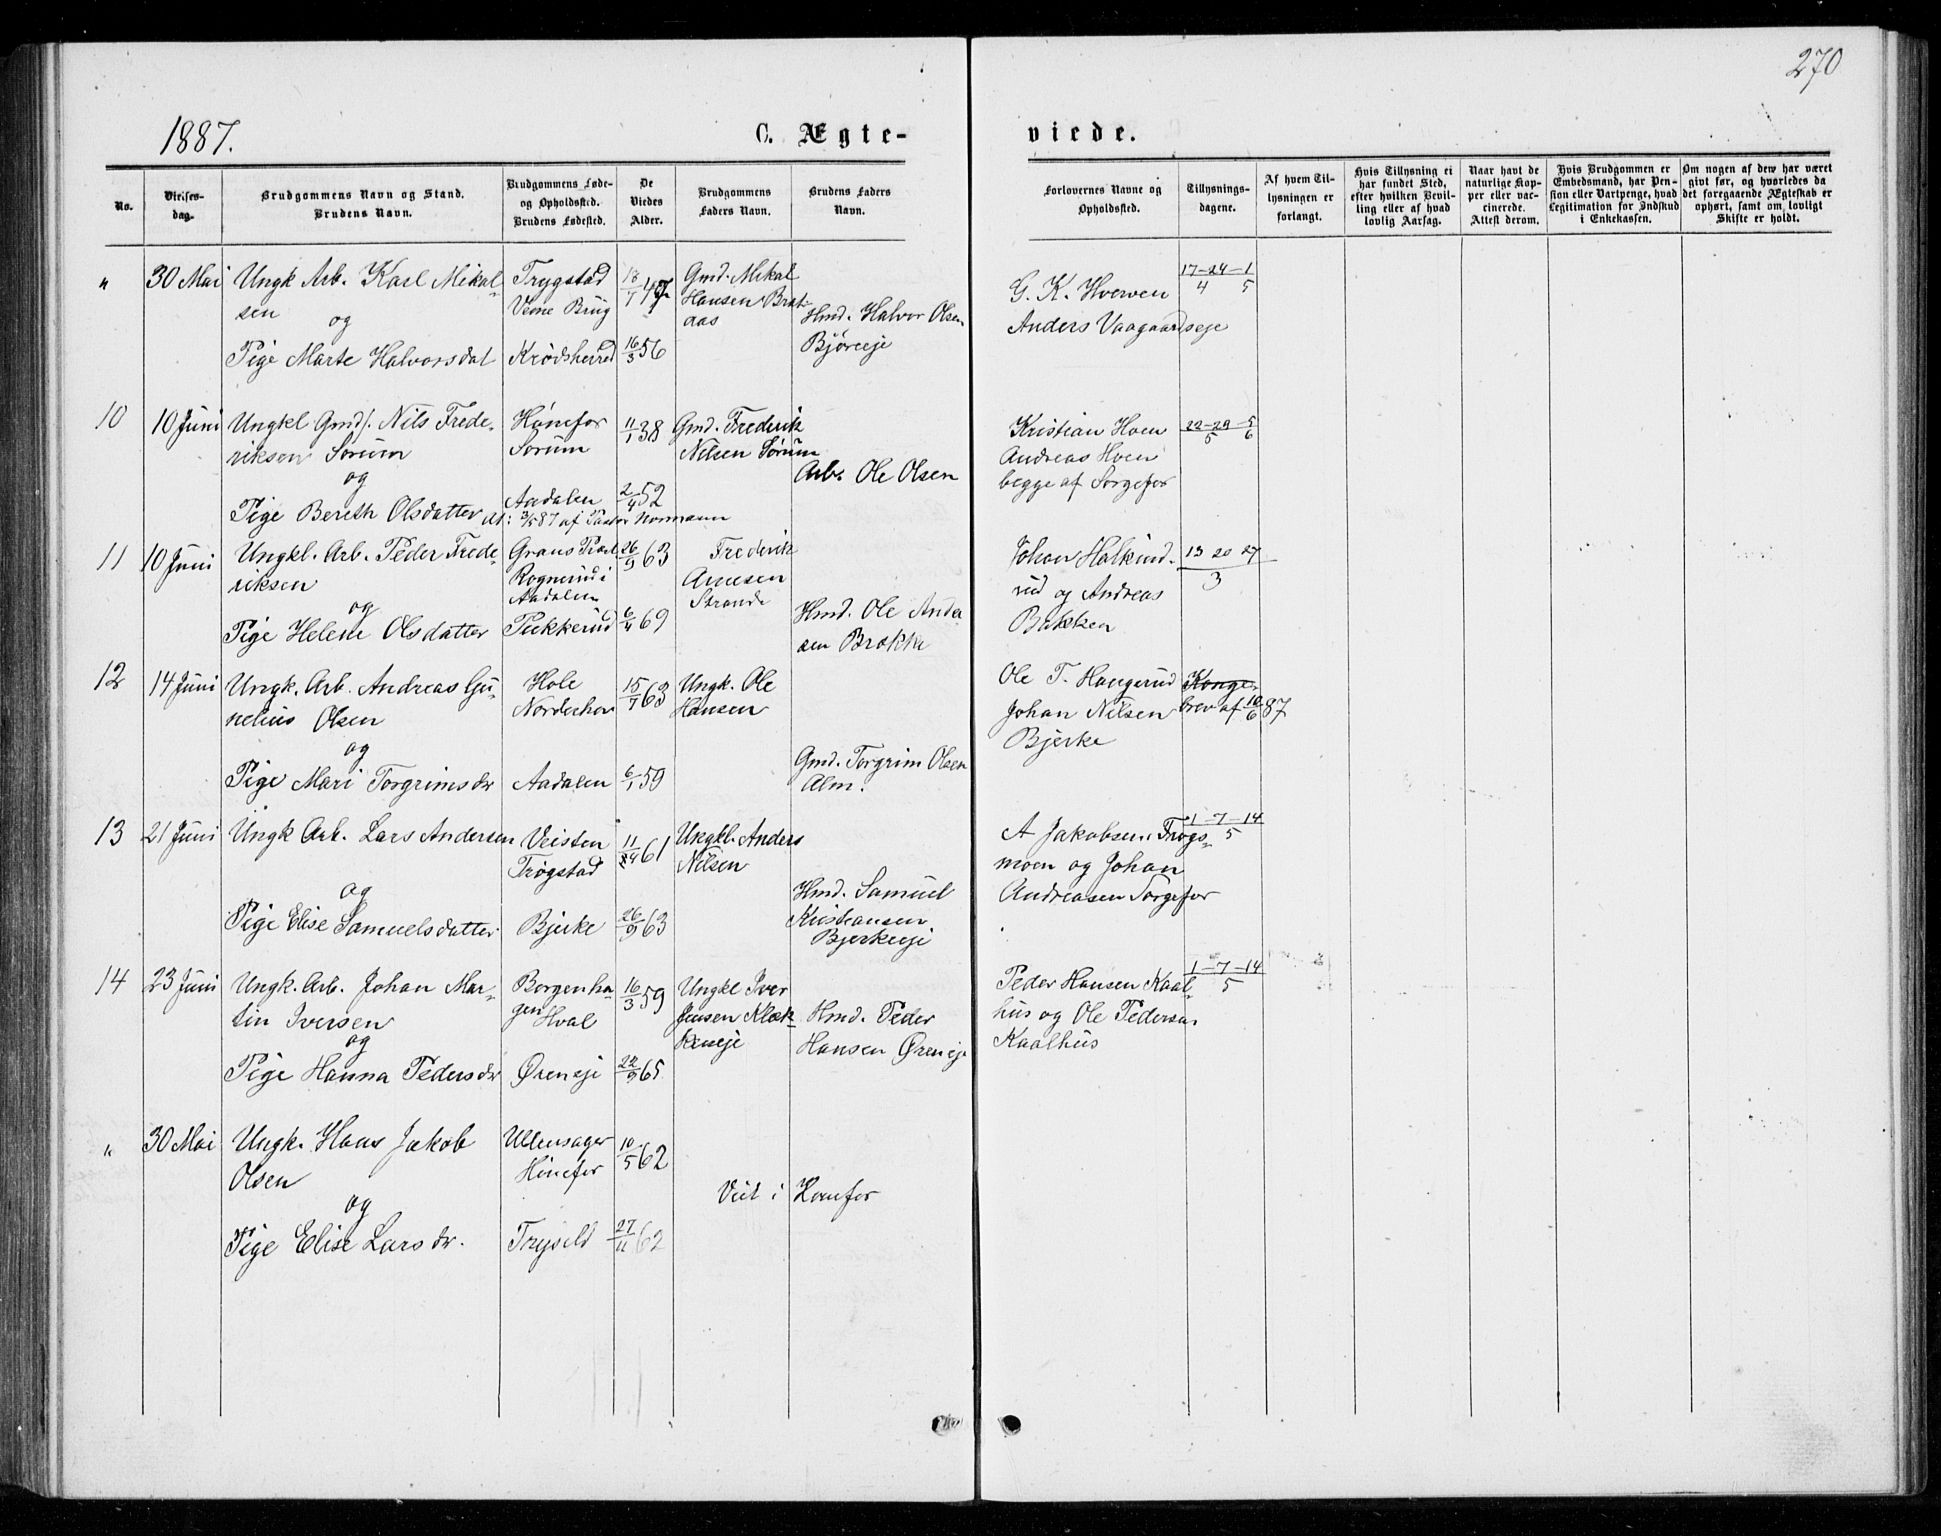 270
1887.
C. Ægte-
viede.
No.
Vielses-
dag.
Brudgommens Navn og Stand.
Brudens Navn.
Brudgommens Føde-
og Opholdssted.
Brudens Fødested.
De
Viedes
Alder.
Brudgommens
Faders Navn.
Brudens Faders
Navn.
Forlovernes Navne og
Opholdssted.
Tillysnings-
dagene.
Af hvem Til-
lysningen er
forlangt.
Hvis Tillysning ei
har fundet Sted,
efter hvilken Bevil-
ling eller af hvad
lovlig Aarsag.
Naar havt de
naturlige Kop-
per eller vac-
cinerede.
Attest derom.
Hvis Brudgommen er
Embedsmand, har Pen-
sion eller Vartpenge, hvad
Legitimation for Indskud
i Enkekassen.
Om nogen af dem har været
givt før, og hvorledes da
det foregaaende Ægteskab er
ophørt, samt om lovligt
Skifte er holdt.
" 30 Mai Ungk Arb. Karl Mikal-
sen
og
Pige Marte Halvorsdat
Trygstad
Veme Brug
Krødsherred
18/7
16/3 56
Gmd. Mikal
Hansen Brat-
aas
Hmd. Halvor Olsen
Bjøreeje
G. K. Hverven
Anders Vaagaardseje
17-24-1
4 5
10 10 Juni Ungkl Gmd/. Nils Frede-
riksen Sørum
og
Pige Bereth Olsdatter
Hønefos
Sørum
Aadalen
At: 3/5 87 af Pastor Normann
11/1 38
2/4 52
Gmd. Frederik
Nilsen Sørum
Arb. Ole Olsen
Kristian Hoen
Andreas Hoen
begge af Sørgefos
22-29-5
5 6
11 10 Juni Ungkl. Arb. Peder Frede-
riksen
og
Pige Helene Olsdatter
Grans Præst
Rognerud i
Aadalen
Pukkerud
26/9 63
6/4 69
Frederik
Arnesen
Strande
Hmd. Ole Ander
sen Brakka
Johan Halkind-
rud og Andreas
Bakken
13 20 27
3
12 14 Juni Ungk. Arb. Andreas Gu-
nelius Olsen
og
Pige Mari Torgrimsdr
Hole
Norderhov
Aadalen
15/7 63
6/1 59
Ungk. Ole
Hansen
Gmd. Torgrim Olsen
Alm.
Ole T. Haugerud
Johan Nilsen
Bjerke
Konge-
brev af 10/6 87
13 21 Juni Ungk Arb. Lars Andersen
og
Pige Elise Samuelsdatter
Veisten
Trøgstad
Bjerke
11/4 61
26/9 63
Ungkl. Anders
Nilsen
Hmd. Samuel
Kristiansen
Bjerkeeje
A Jakobsen Trøgs-
moen og Johan
Andreasen Sørgefos
1-7-14
5
14 23 Juni Ungk. Arb. Johan Mar-
tin Iversen
og
Pige Hanna Pedersdr
Borgenha-
gen
Hval
Øreneje
16/3 59
22/9 65
Ungkl Iver
Jensen Klæk-
keneje
Hmd. Peder
Hansen Øreneje
Peder Hansen Kaal-
hus og Ole Pedersen
Kaalhus
1-7-14
5
" 30 Mai Ungk. Hans Jakob
Olsen
og
Pige Elise Larsdr.
Ullensager
Hønefos
Trysild
10/5 62
27/11 62
Viet i Hønefos